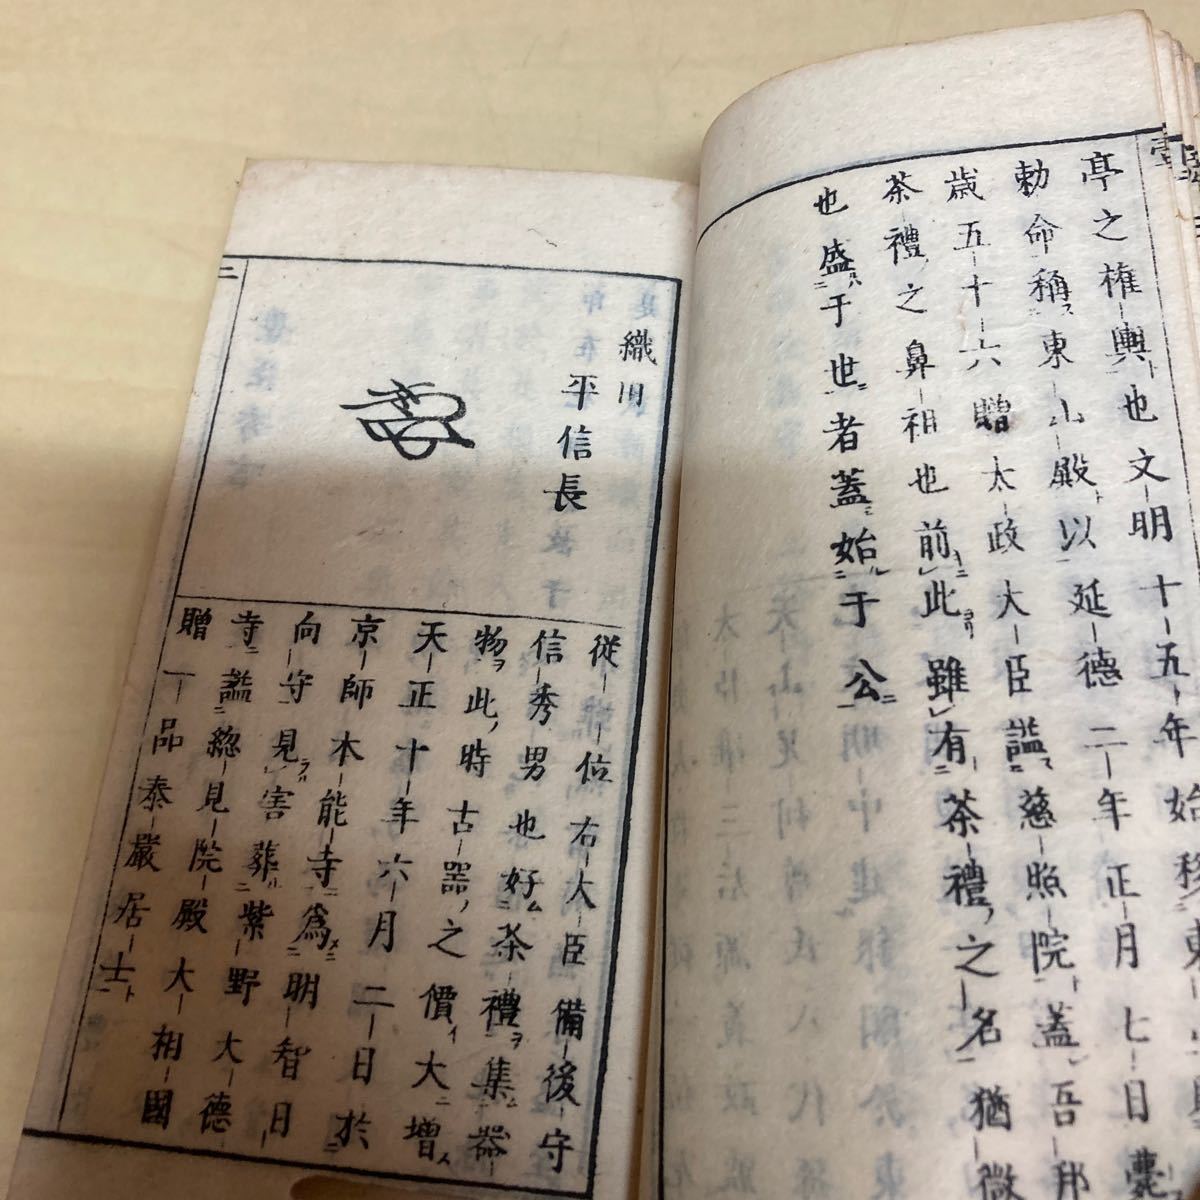 亭之権輿也文明十五年始移東
勅命稱東山殿以延德二年正月七日薨
歳五十六贈太政大臣諡慈照院蓋吾邦
茶禮之鼻祖也前此雖有茶禮之名猶微
也盛于世者蓋始于公
織田
平信長
従一位右大臣備後守
信秀男也好茶禮集器
物此時古器之價大増
天正十年六月二日於
京師本能寺為明智日
向守見害葬紫野大德
寺諡総見院殿大相國
贈一品泰巌居士
二